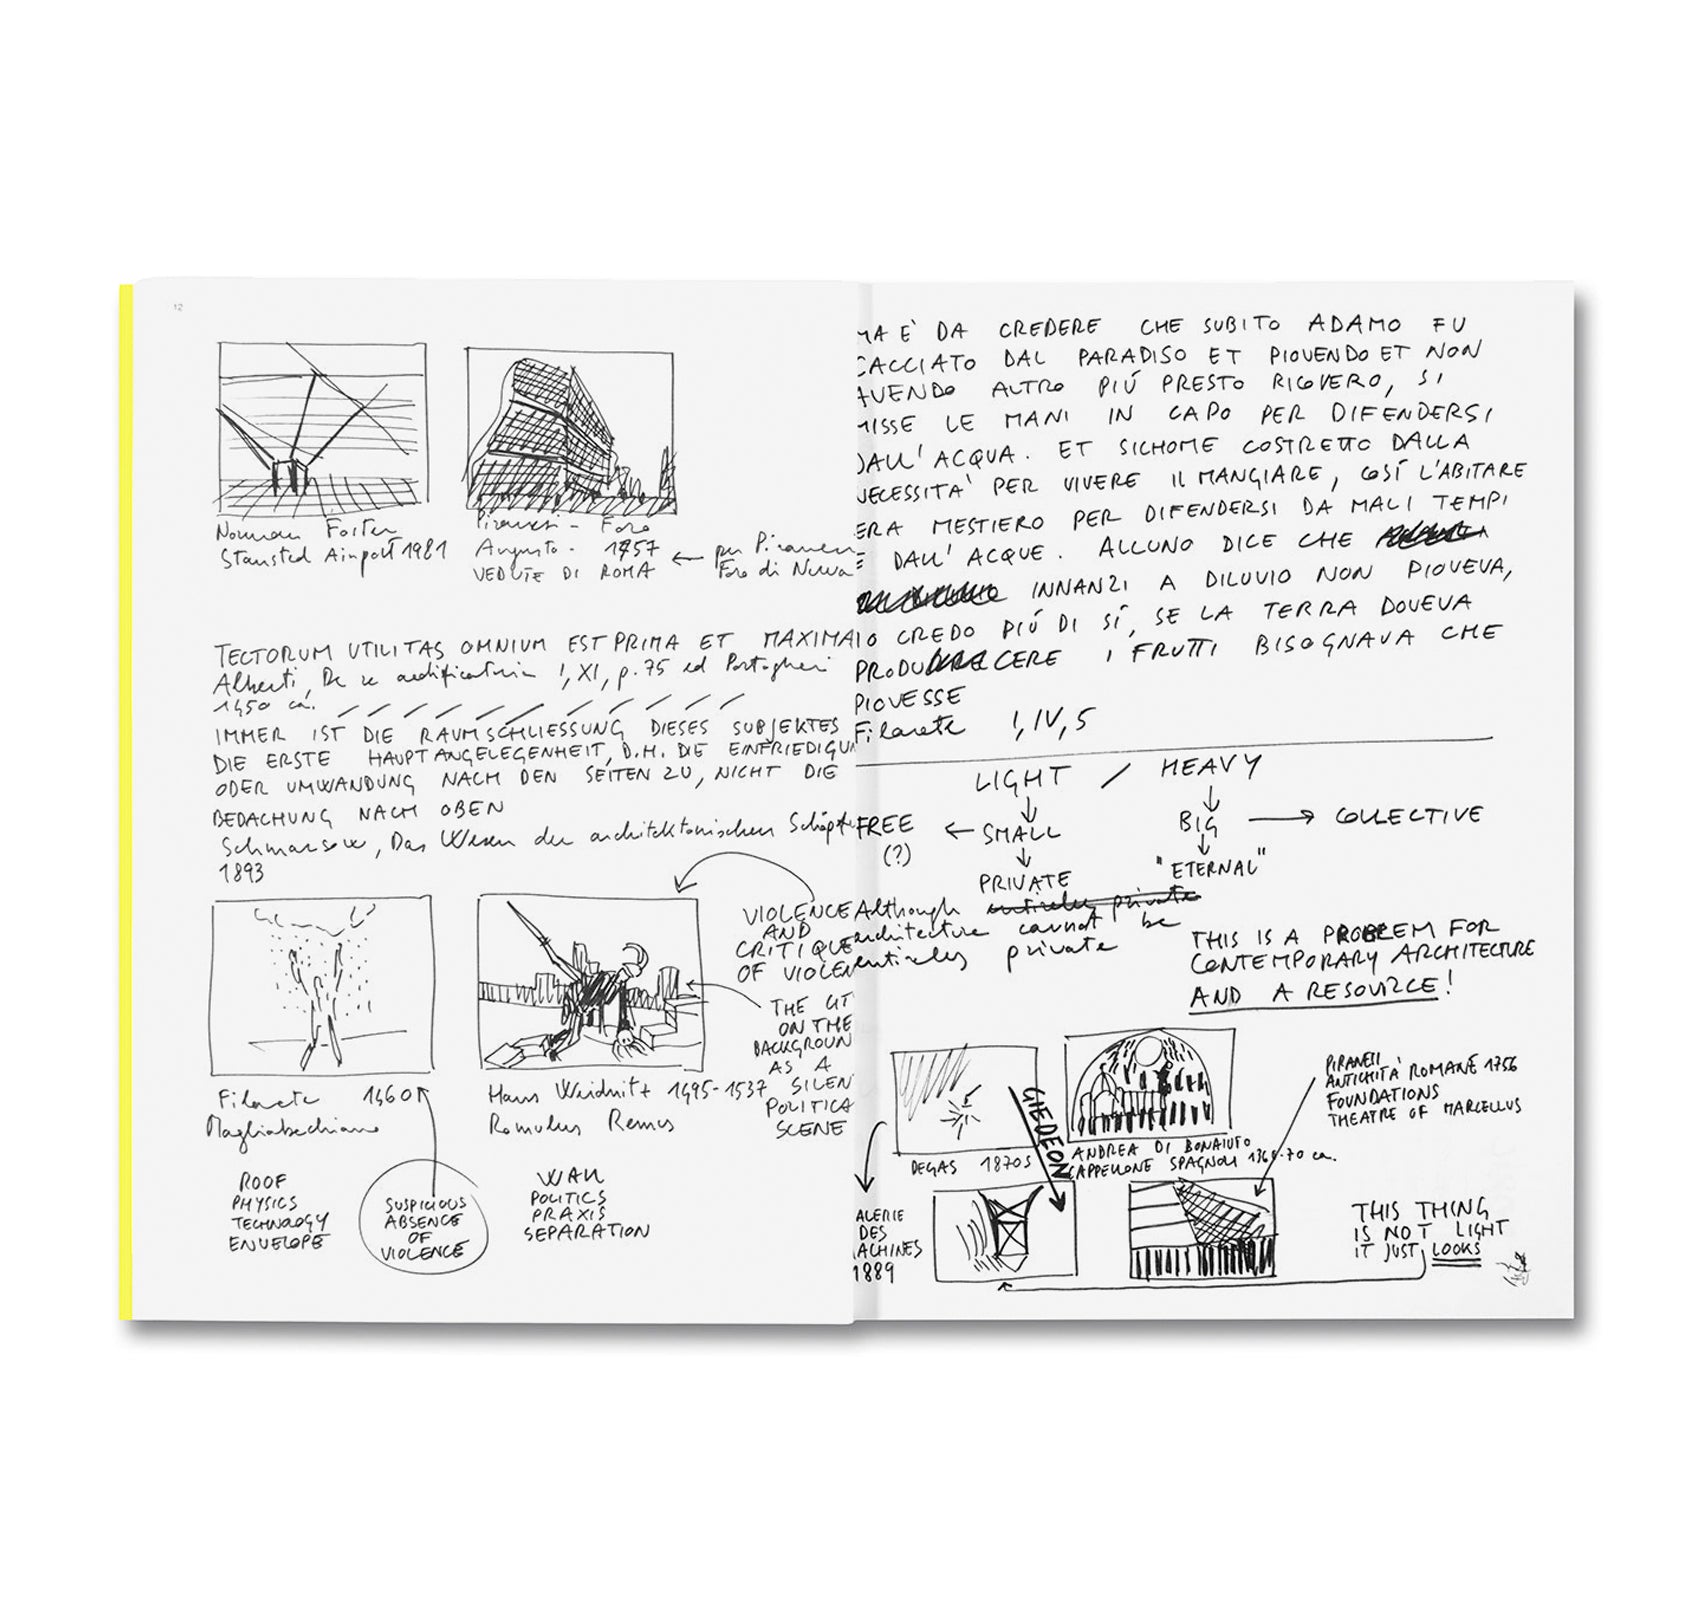 12
Norman Foster
Stansted Airport 1981
Piranesi - Foro
Augusto - 1757
VEDUTE DI ROMA
← per Piranesi
Foro di Nerva
TECTORUM UTILITAS OMNIUM EST PRIMA ET MAXIMA
Alberti, De re aedificatoria I, XI, p. 75 ed Portoghesi
1450 ca.
IMMER IST DIE RAUMSCHLIESSUNG DIESES SUBJEKTES
DIE ERSTE HAUPTANGELEGENHEIT, D.H. DIE EINFRIEDIGUN
ODER UMWANDUNG NACH DEN SEITEN ZU, NICHT DIE
BEDACHUNG NACH OBEN
Schmarsow, Das Wesen der architektonischen Schöpfu
1893
VIOLENCE
AND
CRITIQUE
OF VIOLEN
THE CIT
ON THE
BACKGROUN
AS A
SILEN
POLITICA
SCENE
Filarete 1460
Magliabechiano
Hans Weiditz 1495-1537
Romulus Remus
ROOF
PHYSICS
TECHNOLOGY
ENVELOPE
SUSPICIOUS
ABSENCE
OF
VIOLENCE
WALL
POLITICS
PRAXIS
SEPARATION
MA E' DA CREDERE CHE SUBITO ADAMO FU
CACCIATO DAL PARADISO ET PIOVENDO ET NON
AVENDO ALTRO PIÚ PRESTO RICOVERO, SI
MISSE LE MANI IN CAPO PER DIFENDERSI
DALL'ACQUA. ET SICHOME COSTRETTO DALLA
NECESSITA' PER VIVERE IL MANGIARE, COSÍ L'ABITARE
ERA MESTIERO PER DIFENDERSI DA MALI TEMPI
E DALL'ACQUE. ALCUNO DICE CHE
INNANZI A DILUVIO NON PIOVEVA,
IO CREDO PIÚ DI SÍ, SE LA TERRA DOVEVA
PRODUCERE I FRUTTI BISOGNAVA CHE
PIOVESSE
Filarete I, IV, 5
LIGHT / HEAVY
FREE ← SMALL BIG → COLLECTIVE
(?)
PRIVATE "ETERNAL"
Although entirely private
architecture cannot be
entirely private
THIS IS A PROBLEM FOR
CONTEMPORARY ARCHITECTURE
AND A RESOURCE!
GIEDEON
DEGAS 1870s
ANDREA DI BONAIUTO
CAPPELLONE SPAGNOLI 1365-70 ca.
PIRANESI
ANTICHITÀ ROMANE 1756
FOUNDATIONS
THEATRE OF MARCELLUS
ALERIE
DES
MACHINES
1889
THIS THING
IS NOT LIGHT
IT JUST LOOKS